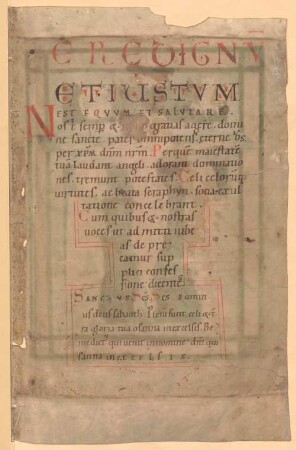 ERE DIGNŪ
ET IUSTUM
EST EQUUM ET SALUTARE
Nos t semp & gratias agere domi
ne sancte pater omnipotens eterne ds
per xpm dnm nrm Per quē maiestatē
tuā laudant angeli adorant dominatio
nes tremunt potestates Celi celorūq
virtutes ac beata seraphyn socia exul
tatione concelebrant
Cum quibus & nostras
voces ut admitti iube
as depre
camur sup
plici confes
sione dicentes
SANCTUS SCS SCS DOMIN
us deus sabaoth Pleni sunt celi & t
ra gloria tua osanna in excelsis Be
nedict qui venit in nomine dni o
sanna in excelsis